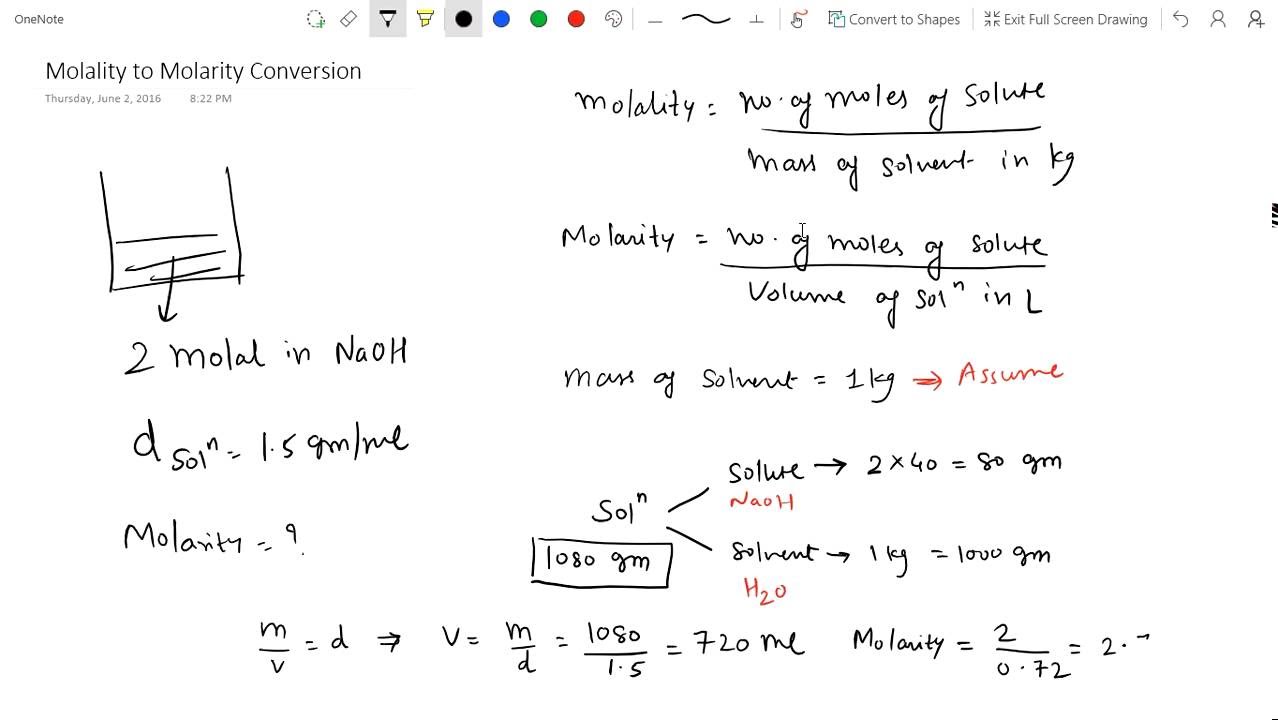 OneNote
Convert to Shapes
Exit Full Screen Drawing
Molality to Molarity Conversion
Thursday, June 2, 2016 8:22 PM
Molality = no. of moles of solute
mass of solvent in kg
Molarity = no. of moles of solute
Volume of solⁿ in L
2 molal in NaOH
mass of solvent = 1 kg ⇒ Assume
d solⁿ = 1.5 gm/ml
Molarity = ?
Solⁿ
1080 gm
Solute → 2 × 40 = 80 gm
NaOH
Solvent → 1 kg = 1000 gm
H₂O
m/v = d ⇒ V = m/d = 1080/1.5 = 720 ml
Molarity = 2/0.72 = 2.